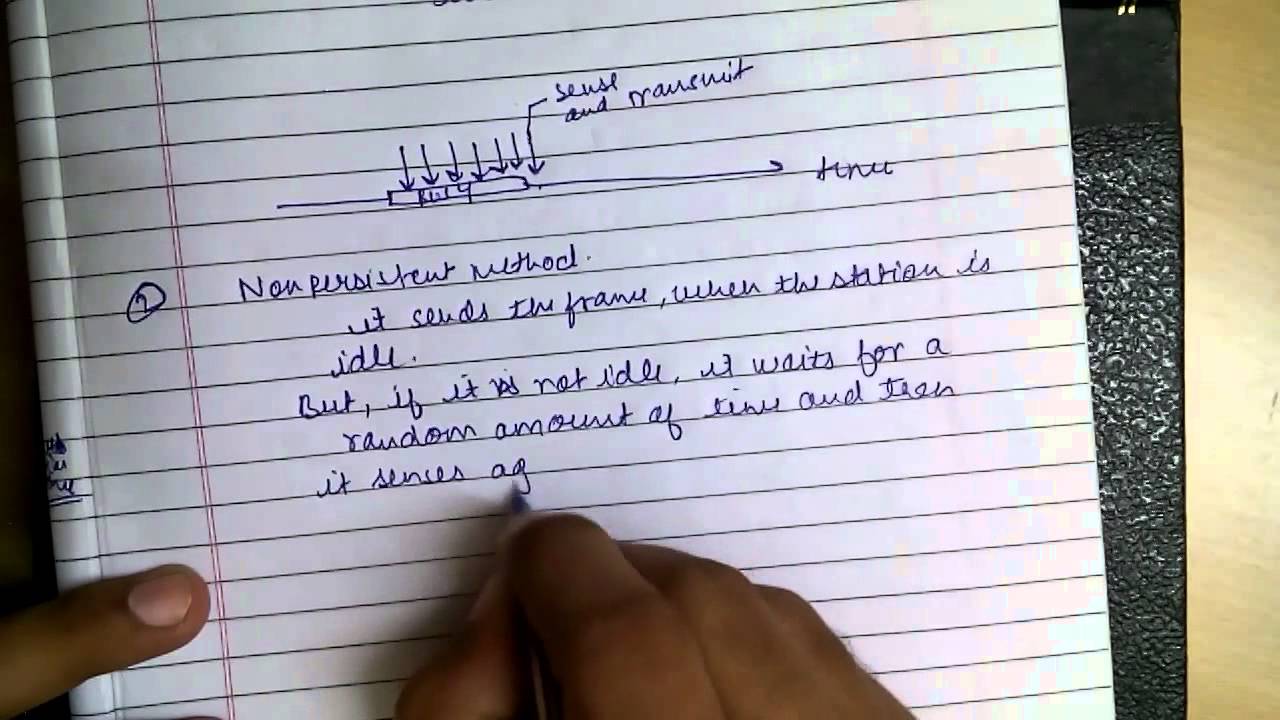 sense
and transmit
Busy
time
2 Nonpersistent method.
it sends the frame, when the station is
idle.
But, if it is not idle, it waits for a
random amount of time and then
it senses ag